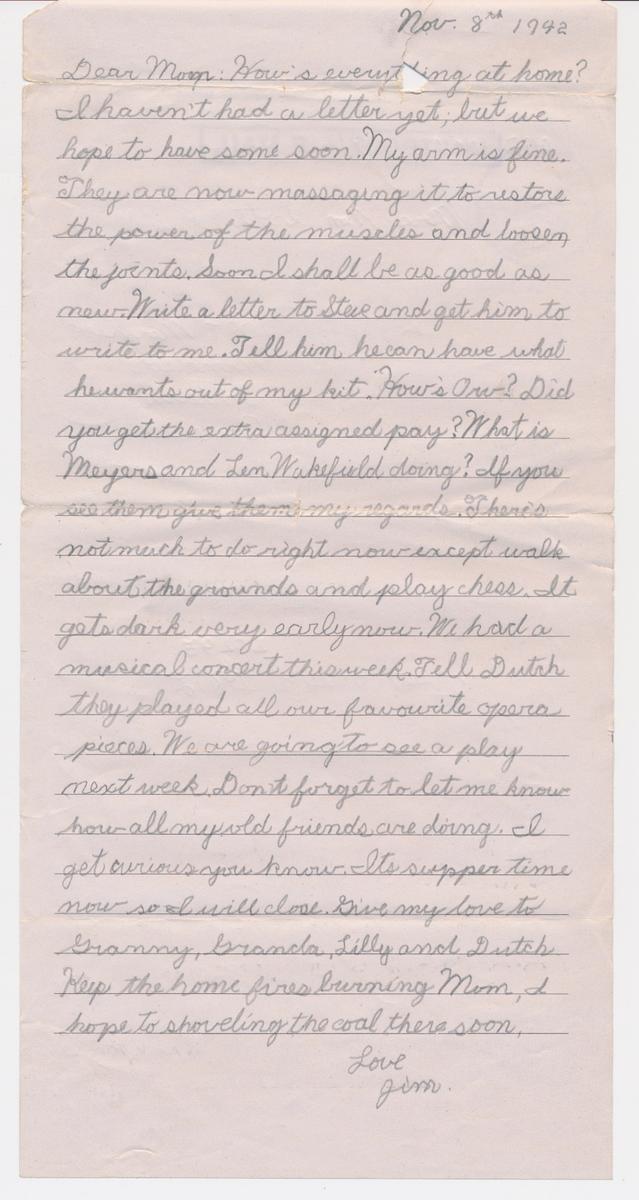 Nov. 8th 1942
Dear Mom: How's everything at home?
I haven't had a letter yet, but we
hope to have some soon. My arm is fine.
They are now massaging it to restore
the power of the muscles and loosen
the joints. Soon I shall be as good as
new. Write a letter to Steve and get him to
write to me. Tell him he can have what
he wants out of my kit. How's Orv? Did
you get the extra assigned pay? What is
Meyers and Len Wakefield doing? If you
see them give them my regards. There's
not much to do right now except walk
about the grounds and play chess. It
gets dark very early now. We had a
musical concert this week. Tell Dutch
they played all our favourite opera
pieces. We are going to see a play
next week. Don't forget to let me know
how all my old friends are doing. I
get curious you know. Its supper time
now so I will close. Give my love to
Granny, Granda, Lilly and Dutch
Keep the home fires burning Mom, I
hope to shoveling the coal there soon.
Love
Jim.